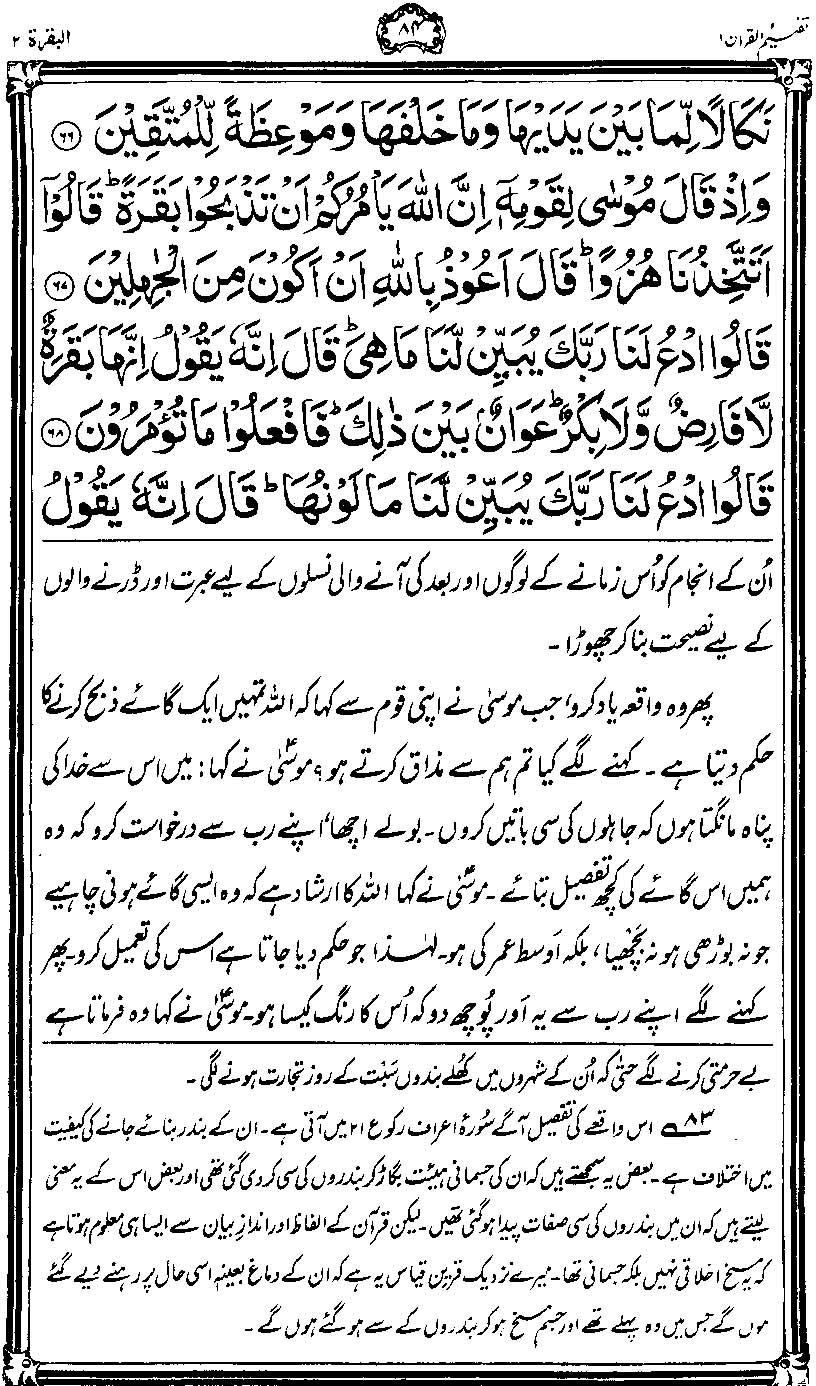 تفہیم القرآن ۱
۸۴
البقرۃ ۲
نَكَالًا لِّمَا بَيْنَ يَدَيْهَا وَمَا خَلْفَهَا وَمَوْعِظَةً لِّلْمُتَّقِيْنَ ﴿۶۶﴾
وَاِذْ قَالَ مُوْسٰى لِقَوْمِهٖٓ اِنَّ اللّٰهَ يَاْمُرُكُمْ اَنْ تَذْبَحُوْا بَقَرَةً ؕ قَالُوْٓا
اَتَتَّخِذُنَا هُزُوًا ؕ قَالَ اَعُوْذُ بِاللّٰهِ اَنْ اَكُوْنَ مِنَ الْجٰهِلِيْنَ ﴿۶۷﴾
قَالُوا ادْعُ لَنَا رَبَّكَ يُبَيِّنْ لَّنَا مَا هِىَ ؕ قَالَ اِنَّهٗ يَقُوْلُ اِنَّهَا بَقَرَةٌ
لَّا فَارِضٌ وَّلَا بِكْرٌ ؕ عَوَانٌۢ بَيْنَ ذٰلِكَ ؕ فَافْعَلُوْا مَا تُؤْمَرُوْنَ ﴿۶۸﴾
قَالُوا ادْعُ لَنَا رَبَّكَ يُبَيِّنْ لَّنَا مَا لَوْنُهَا ؕ قَالَ اِنَّهٗ يَقُوْلُ
اُن کے انجام کو اُس زمانے کے لوگوں اور بعد کی آنے والی نسلوں کے لیے عبرت اور ڈرنے والوں
کے لیے نصیحت بنا کر چھوڑا۔
پھر وہ واقعہ یاد کرو، جب موسیٰؑ نے اپنی قوم سے کہا کہ اللہ تمہیں ایک گائے ذبح کرنے کا
حکم دیتا ہے۔ کہنے لگے کیا تم ہم سے مذاق کرتے ہو؟ موسیٰؑ نے کہا: میں اس سے خدا کی
پناہ مانگتا ہوں کہ جاہلوں کی سی باتیں کروں۔ بولے اچھا، اپنے رب سے درخواست کرو کہ وہ
ہمیں اس گائے کی کچھ تفصیل بتائے۔ موسیٰؑ نے کہا اللہ کا ارشاد ہے کہ وہ ایسی گائے ہونی چاہیے
جو نہ بوڑھی ہو نہ بچھیا، بلکہ اَوسط عمر کی ہو۔ لہٰذا جو حکم دیا جاتا ہے اس کی تعمیل کرو۔ پھر
کہنے لگے اپنے رب سے یہ اَور پُوچھ دو کہ اُس کا رنگ کیسا ہو۔ موسیٰؑ نے کہا وہ فرماتا ہے
بے حرمتی کرنے لگے حتیٰ کہ اُن کے شہروں میں کھُلے بندوں سَبْت کے روز تجارت ہونے لگی۔
۸۳ اس واقعے کی تفصیل آگے سُورۂ اعراف رکوع ۲۱ میں آتی ہے۔ ان کے بندر بنائے جانے کی کیفیت
میں اختلاف ہے۔ بعض یہ سمجھتے ہیں کہ ان کی جسمانی ہیئت بگاڑ کر بندروں کی سی کر دی گئی تھی اور بعض اس کے یہ معنی
لیتے ہیں کہ ان میں بندروں کی سی صفات پیدا ہو گئی تھیں۔ لیکن قرآن کے الفاظ اور اندازِ بیان سے ایسا ہی معلوم ہوتا ہے
کہ یہ مسخ اخلاقی نہیں بلکہ جسمانی تھا۔ میرے نزدیک قرین قیاس یہ ہے کہ ان کے دماغ بعینہٖ اسی حال پر رہنے دیے گئے
ہوں گے جس میں وہ پہلے تھے اور جسم مسخ ہو کر بندروں کے سے ہو گئے ہوں گے۔